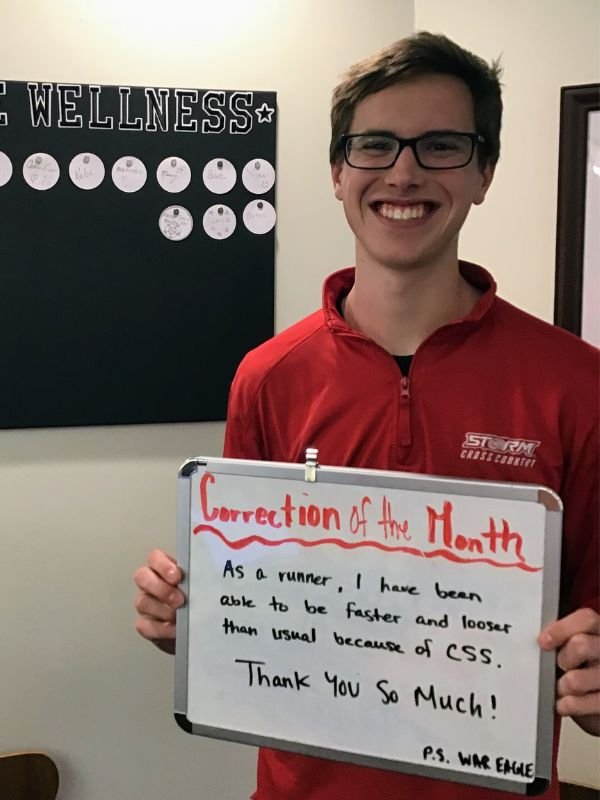 E WELLNESS
STORM
CROSS COUNTRY
Correction of the Month
As a runner, I have been
able to be faster and looser
than usual because of CSS.
Thank You So Much!
P.S. WAR EAGLE